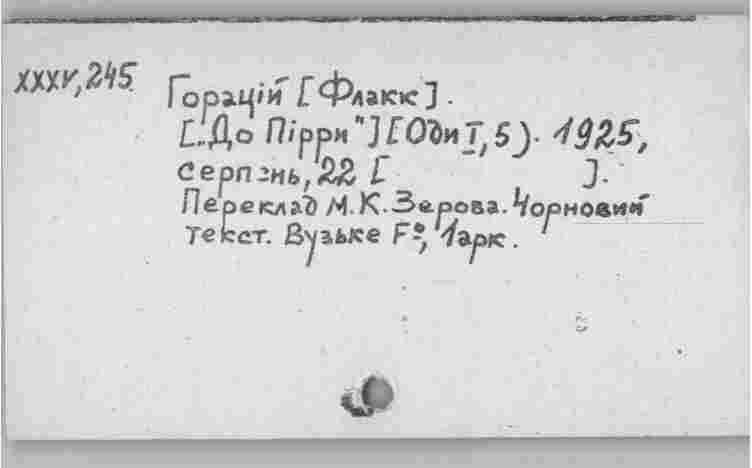 XXXV, 245.
Горацій [Флакк].
[„До Пірри"] [Оди I, 5). 1925,
серпень, 22 [ ].
Переклад М.К. Зерова. Чорновий
текст. Вузьке Fº, 1 арк.